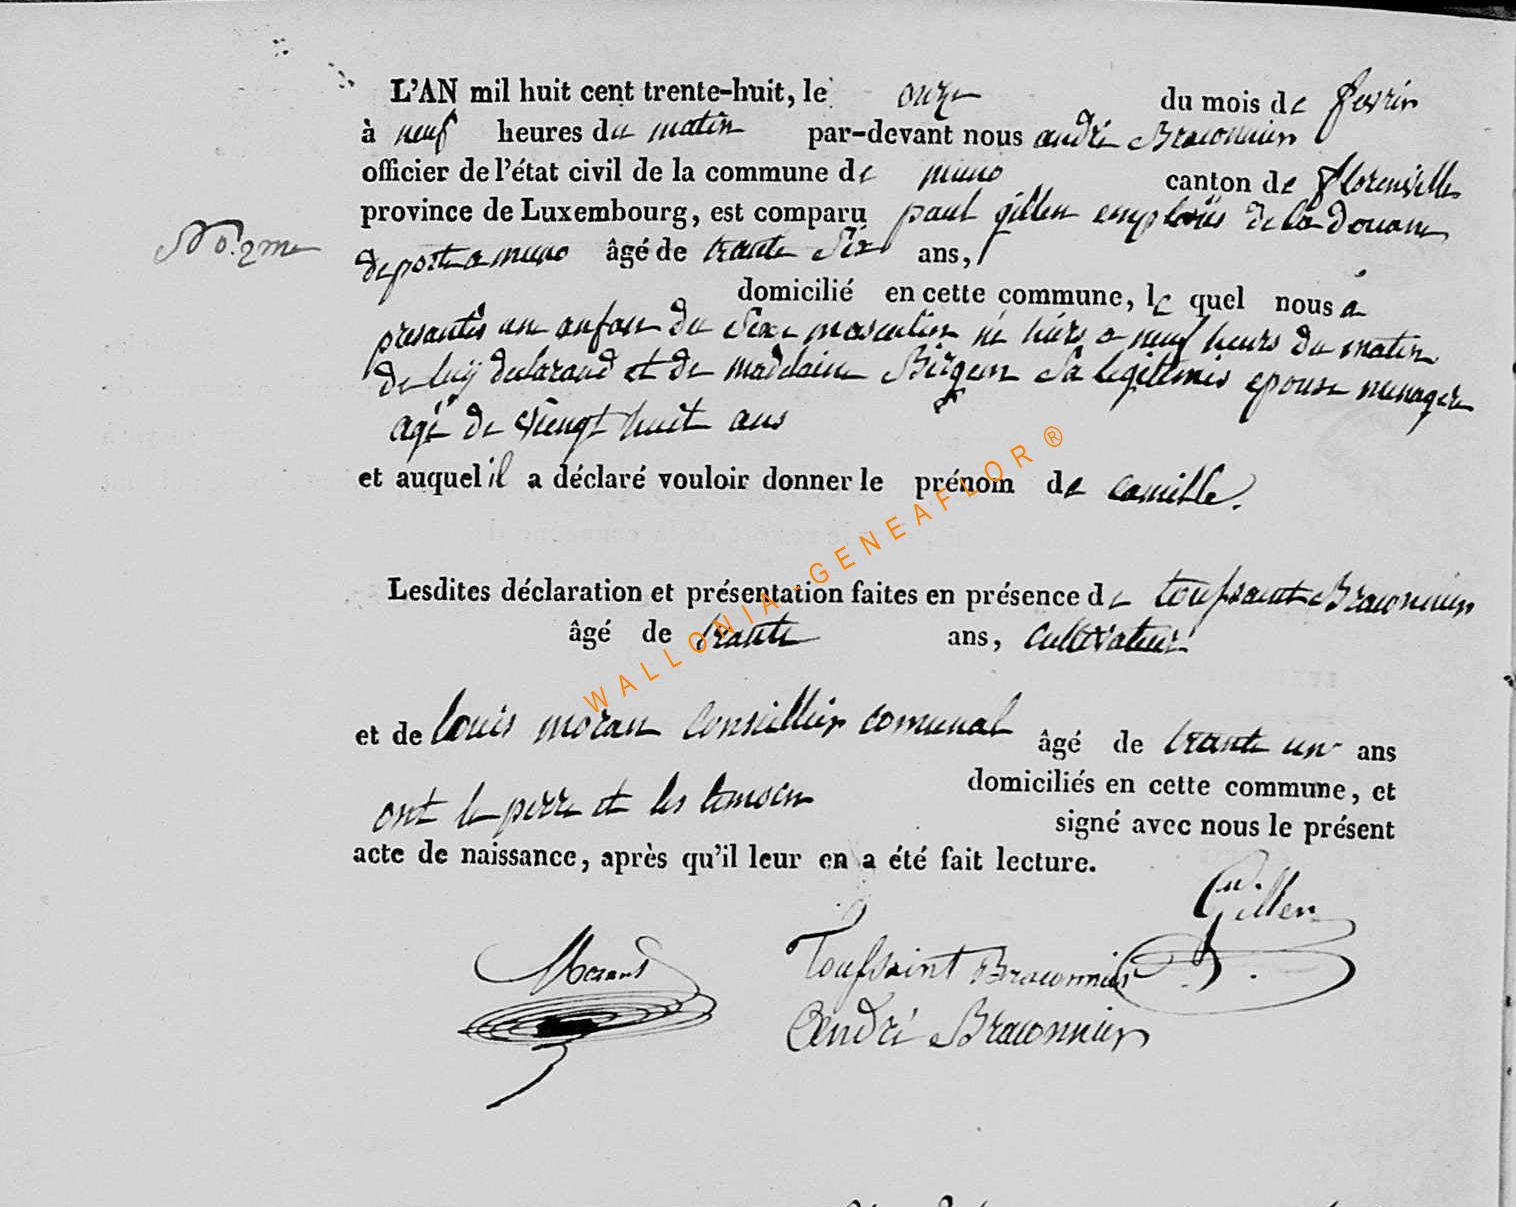 L'AN mil huit cent trente-huit, le onze du mois de fevrier
à neuf heures du matin par-devant nous andré Braconnier
officier de l'état civil de la commune de muno canton de florenville
province de Luxembourg, est comparu paul gillen de la douane
No. 2me
de poste a muno âgé de trante six ans,
domicilié en cette commune, le quel nous a
presantés un anfan du sexe masculin né hiers a neuf heurs du matin
de luy declarand et de madelaine Birgen sa epouse menagere
agé de viengt huit ans
et auquel il a déclaré vouloir donner le prénom de camille.
Lesdites déclaration et présentation faites en présence de toussaint Braconnier
âgé de trante ans, cultivateur
et de louis moran conseillier comunal âgé de trante un ans
domiciliés en cette commune, et
ont le perre et les temoin signé avec nous le présent
acte de naissance, après qu'il leur en a été fait lecture.
Gillen
Toussaint Braconnier
André Braconnier
WALLONIA-GENEAFLOR®